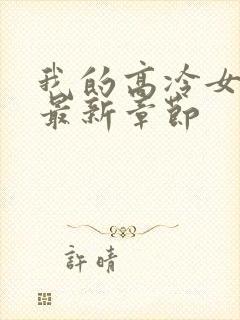 我的高冷女
最新章節
許晴